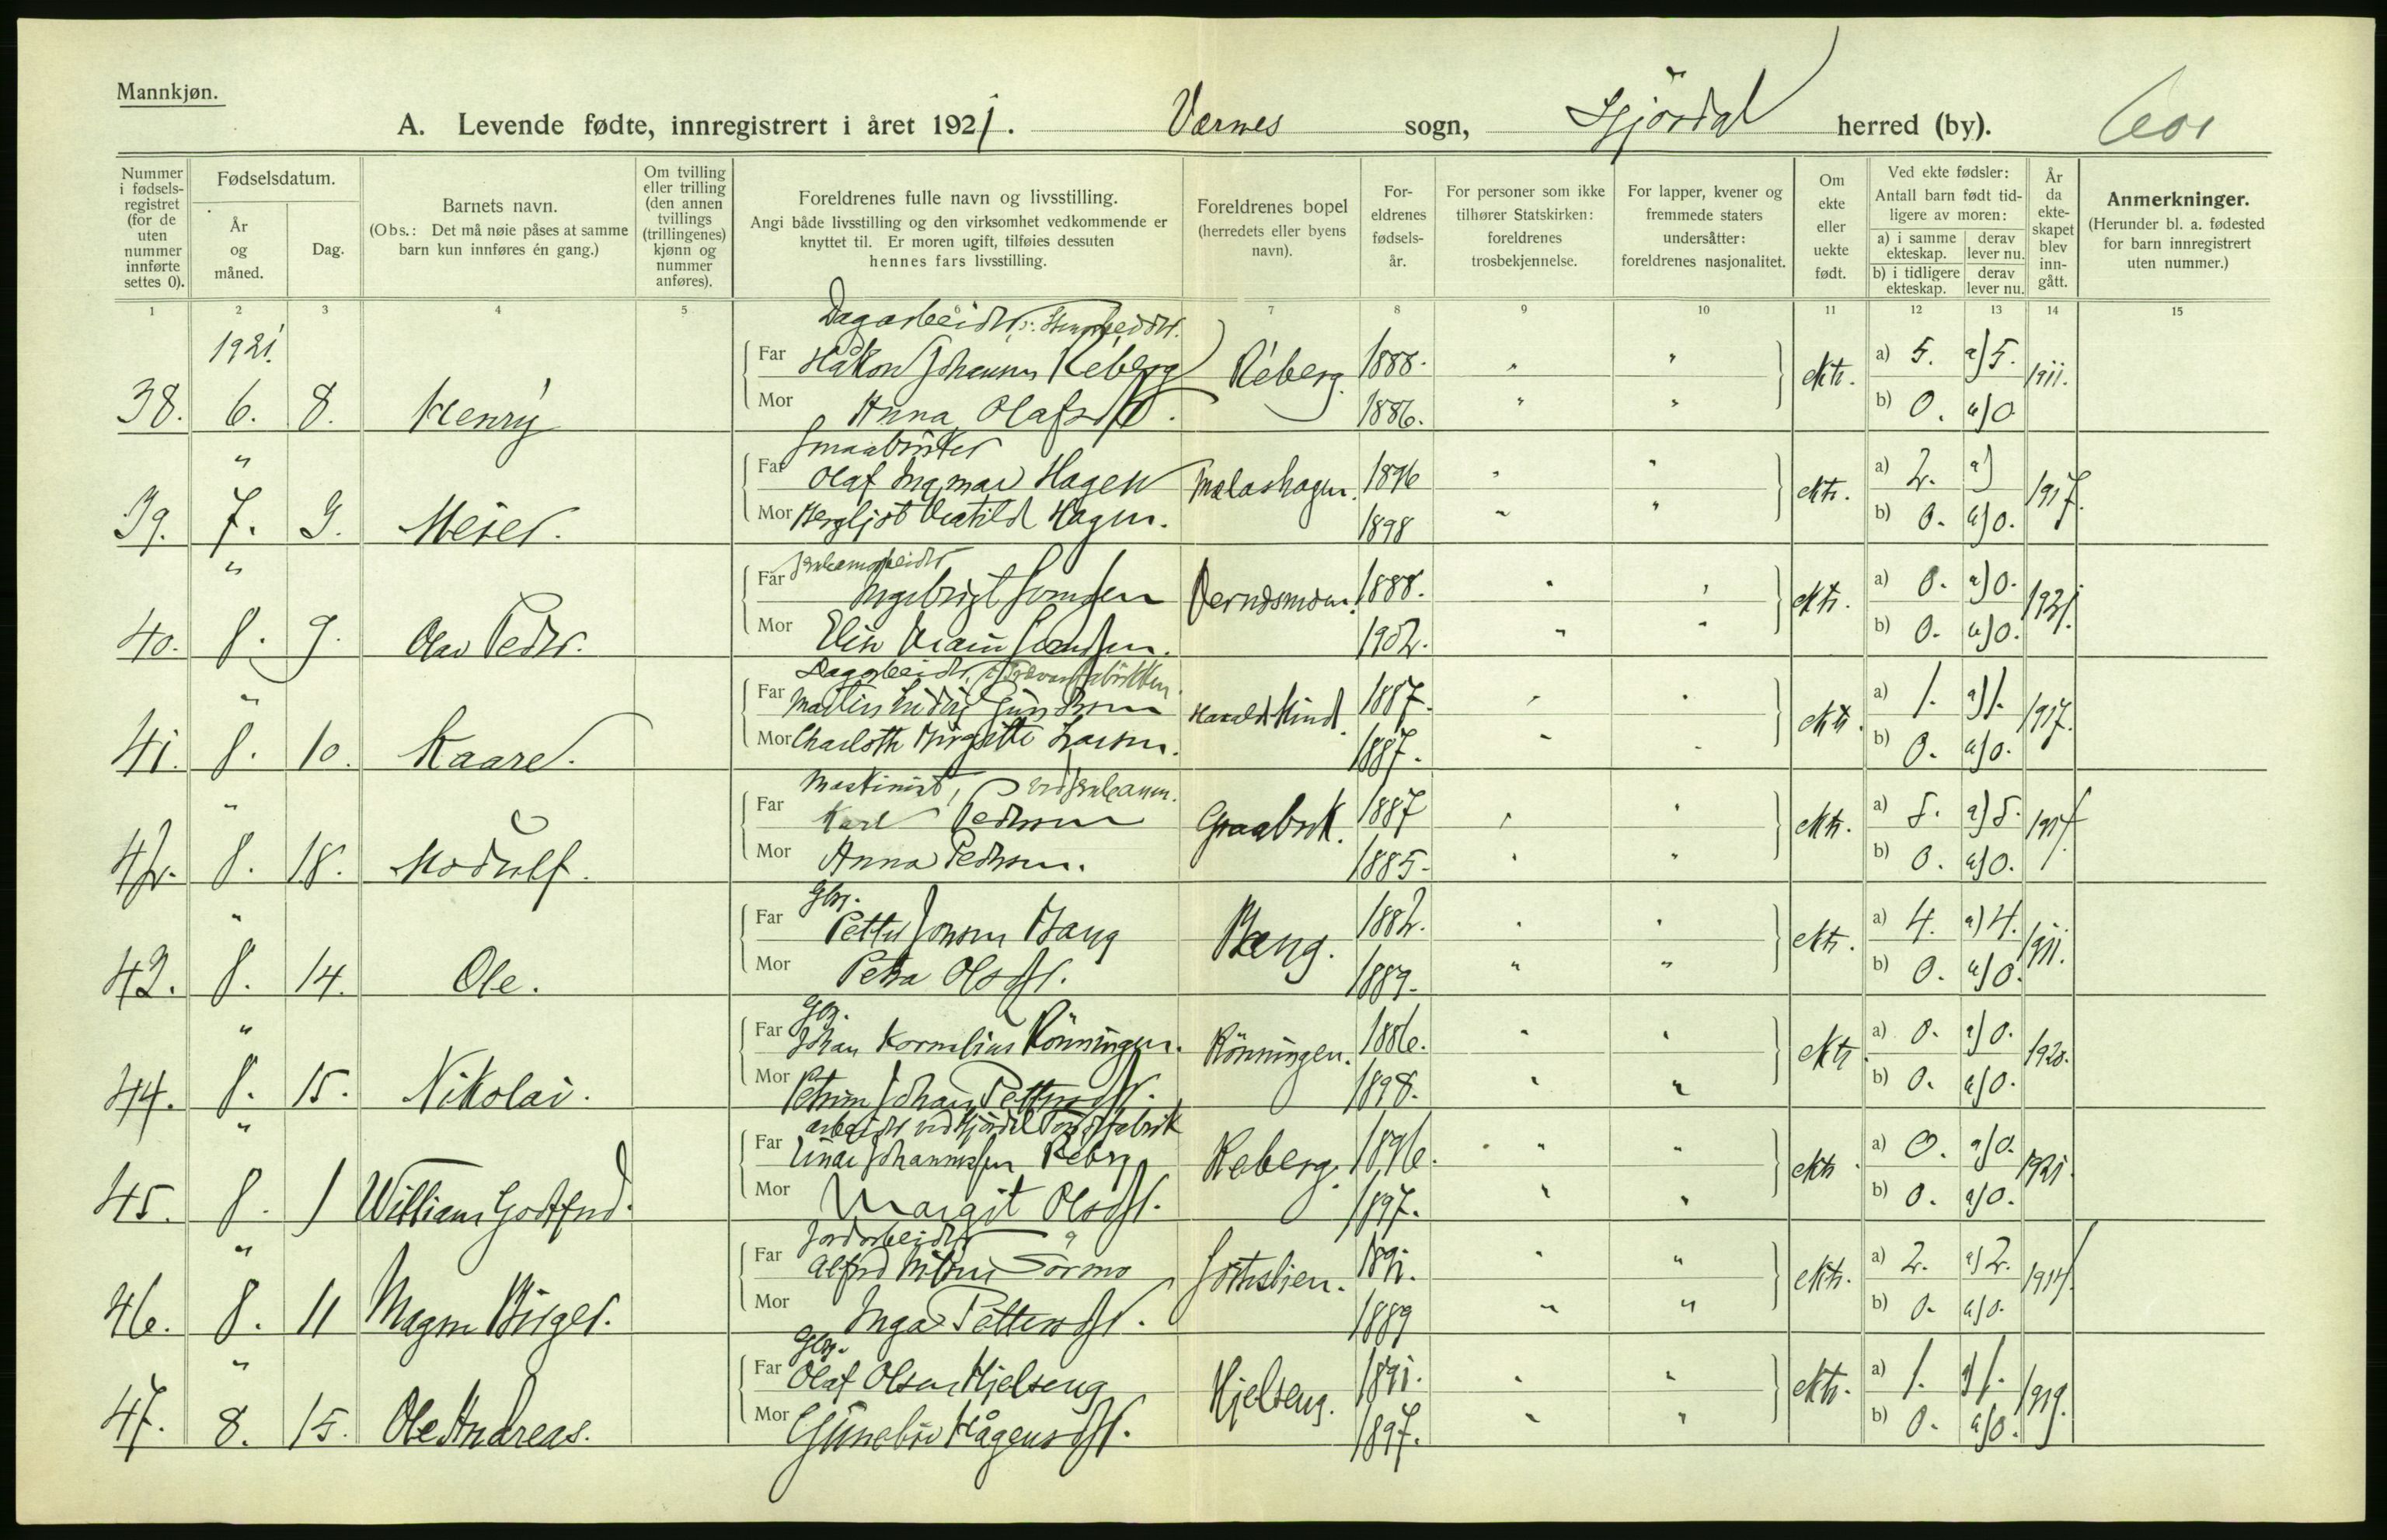 Mannkjøn.
A. Levende fødte, innregistrert i året 1921. Værnes sogn, Stjørdal herred (by).
Nummer i fødsels-registret (for de uten nummer innførte settes 0).
Fødselsdatum.
År og måned.
Dag.
Barnets navn.
(Obs.: Det må nøie påses at samme barn kun innføres én gang.)
Om tvilling eller trilling (den annen tvillings (trillingenes) kjønn og nummer anføres).
Foreldrenes fulle navn og livsstilling.
Angi både livsstilling og den virksomhet vedkommende er knyttet til. Er moren ugift, tilføies dessuten hennes fars livsstilling.
Foreldrenes bopel (herredets eller byens navn).
For-eldrenes fødsels-år.
For personer som ikke tilhører Statskirken: foreldrenes trosbekjennelse.
For lapper, kvener og fremmede staters undersåtter: foreldrenes nasjonalitet.
Om ekte eller uekte født.
Ved ekte fødsler:
Antall barn født tid-ligere av moren:
a) i samme ekteskap.
derav lever nu.
b) i tidligere ekteskap.
derav lever nu.
År da ekte-skapet blev inn-gått.
Anmerkninger.
(Herunder bl. a. fødested for barn innregistrert uten nummer.)
1 2 3 4 5 6 7 8 9 10 11 12 13 14 15
1921.
Dagarbeider
Far Håkon Johannes Reberg Reberg. 1888. " " a) 5. a) 5.
38. 6. 8. Henry Mor Anna Olafsdt. 1886. " " ekte. b) 0. a) 0 1911.
" Smaabruker
Far Olaf Ingmar Hagen 1896 " " a) 2. a)
39. 7. 3. Meier. Mor Bergljot Matild Hagen. 1898 " " ekte. b) 0. a) 0. 1917.
"
Far Ingebrigt 1888. " " a) 0. a) 0.
40. 8. 9. Olav Peder. Mor Elise 1902. " " ekte. b) 0. a) 0. 1921.
" Dagarbeider,
Far Martin 1887. " " a) 1. a) 1.
41. 8. 10. Kaare. Mor Charlotte Birgitte Larsen. 1887. " " ekte. b) 0. a) 0. 1917.
" Maskinist,
Far Karl Pedersen Graabrek. 1887 " " a) 5. a) 5.
42. 8. 18. Modulf. Mor Anna Pedersen. 1885. " " ekte. b) 0. a) 0.
" Gbr.
Far Petter Jonsen Bang Bang. 1882. " " a) 4. a) 4.
43. 8. 14. Ole. Mor Petra Olsdt. 1889. " " ekte. b) 0. a) 0. 1911.
" Gbr.
Far Johan Kornelius Rönningen. Rönningen. 1886. " " a) 0. a) 0.
44. 8. 15. Nikolai. Mor Johan Pettersdt. 1898. " " ekte b) 0. a) 0. 1920.
" arbeider ved Stjördal
Far Einar Johannessen Reberg Reberg. 1896. " " a) 0. a) 0.
45. 8. 1 William Godtfred. Mor Margit Olsdt. 1897. " " ekte b) 0. a) 0. 1921.
" Jordarbeider
Far Alfred Sörmo 1891. " " a) 2. a) 2.
46. 8. 11 Magne Birger. Mor Inga Pettersdt. 1889 " " ekte. b) 0. a) 0. 1914.
" Gbr.
Far Olaf Olsen Hjelseng Hjelseng. 1891. " " a) 1. a) 1.
47. 8. 15. Ole Andreas. Mor Gunelie Hågensdt. 1897. " " ekte. b) 0. a) 0. 1919.